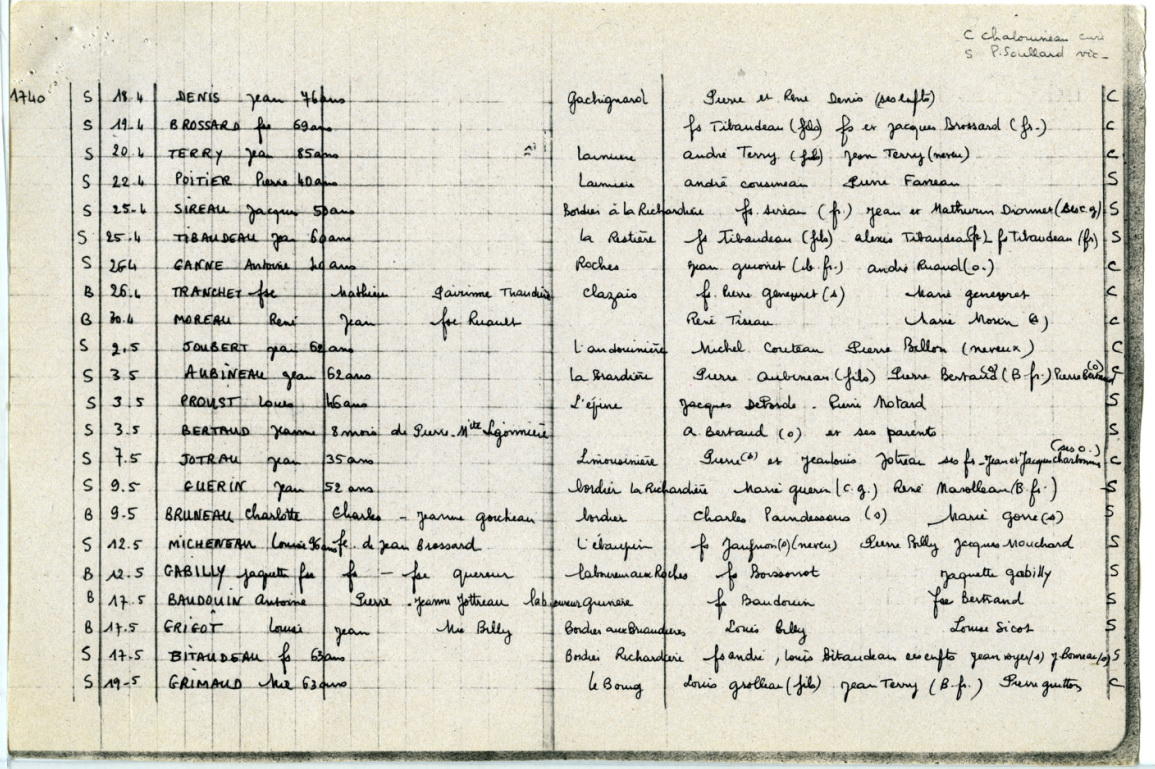 C Chalouineau curé
S P. Soullard vic-
1740 S 18.4 DENIS Jean 76ans Gachignard Pierre et René Denis (ses enfts) C
S 19.4 BROSSARD fse 69ans fs Tibaudeau (fils) fs et Jacques Brossard (fr.) C
S 20.4 TERRY Jean 85ans Laimiere andré Terry (fils) Jean Terry (neveu) C
S 22.4 POITIER Pierre 40ans Laimiere andré cousineau Pierre Farreau S
S 25.4 SIREAU Jacques 50ans Bordier à la Richardière fs. sireau (fr.) Jean et Mathurin Dionnet S
S 25.4 TIBAUDEAU Jean 60ans la Restière fs Tibaudeau (fils) alexis Tibaudeau fs Tibaudeau (fs) S
S 26.4 GANNE Antoine ans Roches Jean (b. fr.) andré Ruaud (o.) C
B 26.4 TRANCHET fse Mathieu Clazais fs. Pierre geneyret (s) Marie geneyret C
B 30.4 MOREAU René Jean fse Ruault René Tiseau Marie Morin (s) C
S 2.5 JOUBERT Jean 62ans L'audouinière Michel Couteau Pierre Billon (neveux) C
S 3.5 AUBINEAU Jean 62ans la Brardière Pierre Aubineau (fils) Pierre Bertaud (B.fr.) Pierre (o) C
S 3.5 PROUST Louis 46ans L'épine Jacques Pierre Motard S
S 3.5 BERTAUD Jeanne 8mois de Pierre - a Bertaud (o) et ses parents S
S 7.5 JOTRAU Jean 35ans Limousinière Pierre(s) et Jean Louis Jotreau ses fs - Jean et Jacques Charbonneau (ses o.) C
S 9.5 GUERIN Jean 52ans bordier la Richardière Marie guerin (c.g.) René Marolleau (B.fr.) S
B 9.5 BRUNEAU Charlotte Charles - Jeanne goicheau bordier Charles Paindessous (o) Marie gorre (s) S
S 12.5 MICHENEAU Louise 36ans fe. de Jean Brossard L'ébaupin fs (neveu) Pierre Polly Jacques Mouchard S
B 12.5 GABILLY Jaquette fse fs - fse quereur laboureur aux Roches fs Boissonot Jaquette gabilly S
B 17.5 BAUDOUIN Antoine Pierre - Jeanne Jottreau laboureur gunière fs Baudouin fse Bertrand S
B 17.5 GRIGOT Louis Jean Mie Billy Bordier aux Briaudières Louis billy Louise Sicot S
S 17.5 BITAUDEAU fs 63ans Bordier Richardière fs andré, louis Bitaudeau es enfts Jean (s) J Bonneau (o) S
S 19-5 GRIMAUD Mie 63ans le Bourg Louis grolleau (fils) Jean Terry (B.fr.) Pierre guitton C